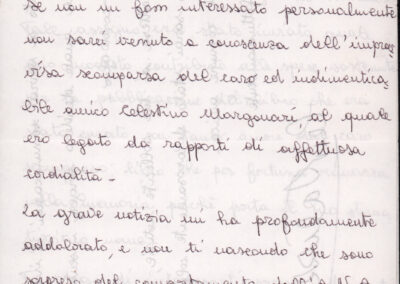 se non mi fossi interessato personalmente
non sarei venuto a conoscenza dell'impro
visa scomparsa del caro ed indimentica
bile amico Celestino Margonari, al quale
ero legato da rapporti di affettuosa
cordialità -
La grave notizia mi ha profondamente
addolorato, e non ti nascondo che sono
sorpreso del comportamento